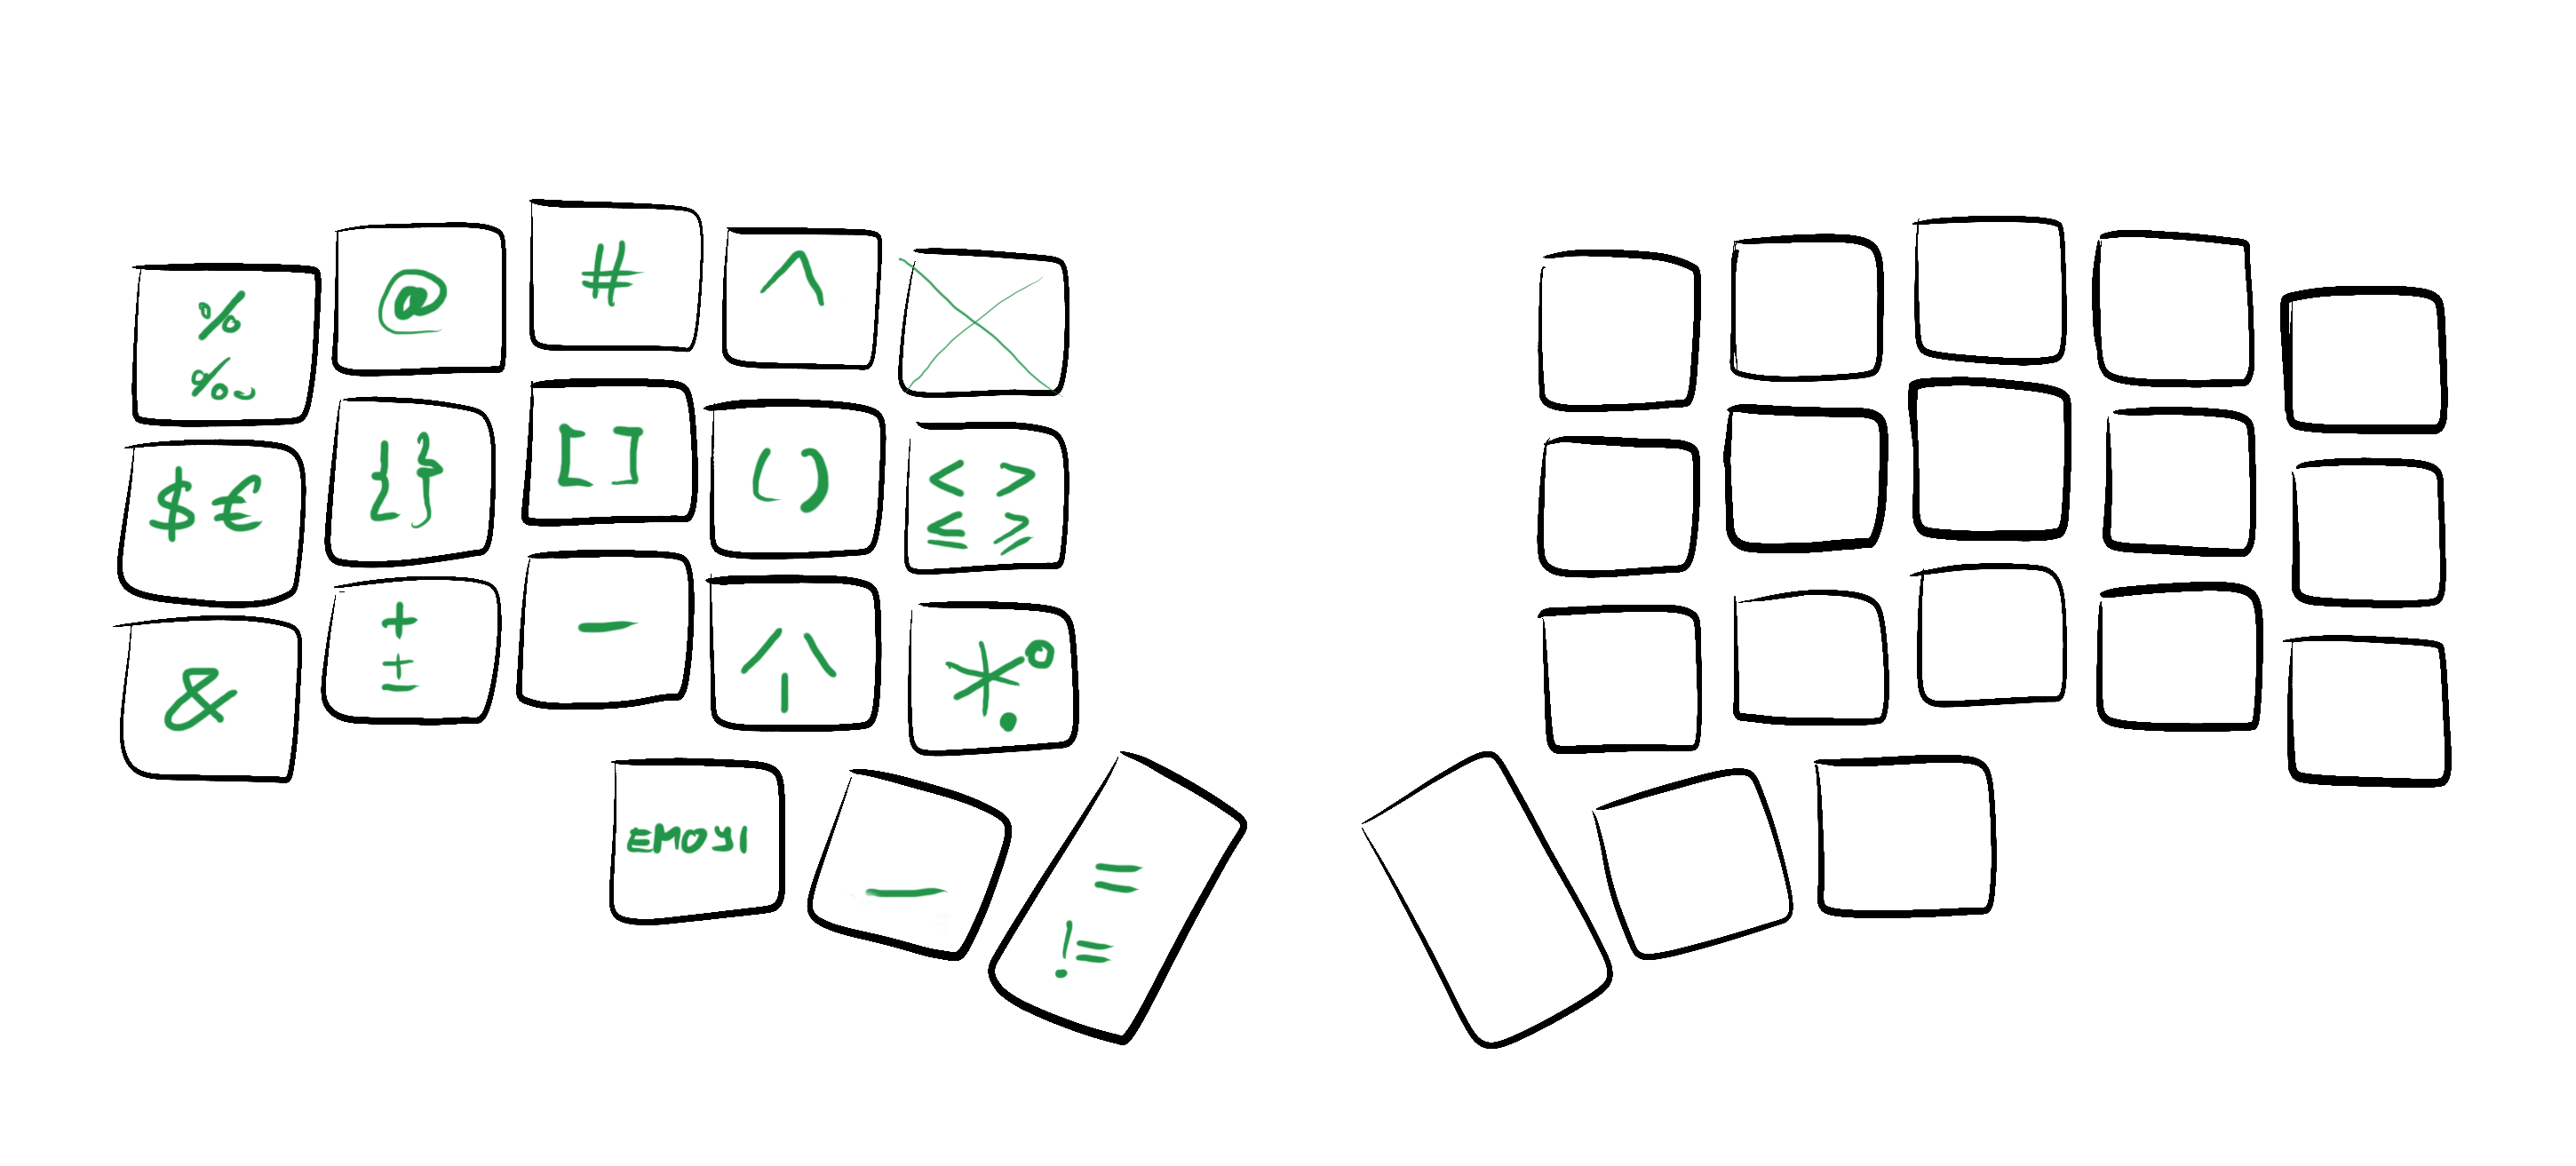 %
‰
@
#
^
$ €
{ }
[ ]
( )
< >
≤ ≥
&
+
±
-
/ \
|
* °
.
EMOYI
_
=
!=